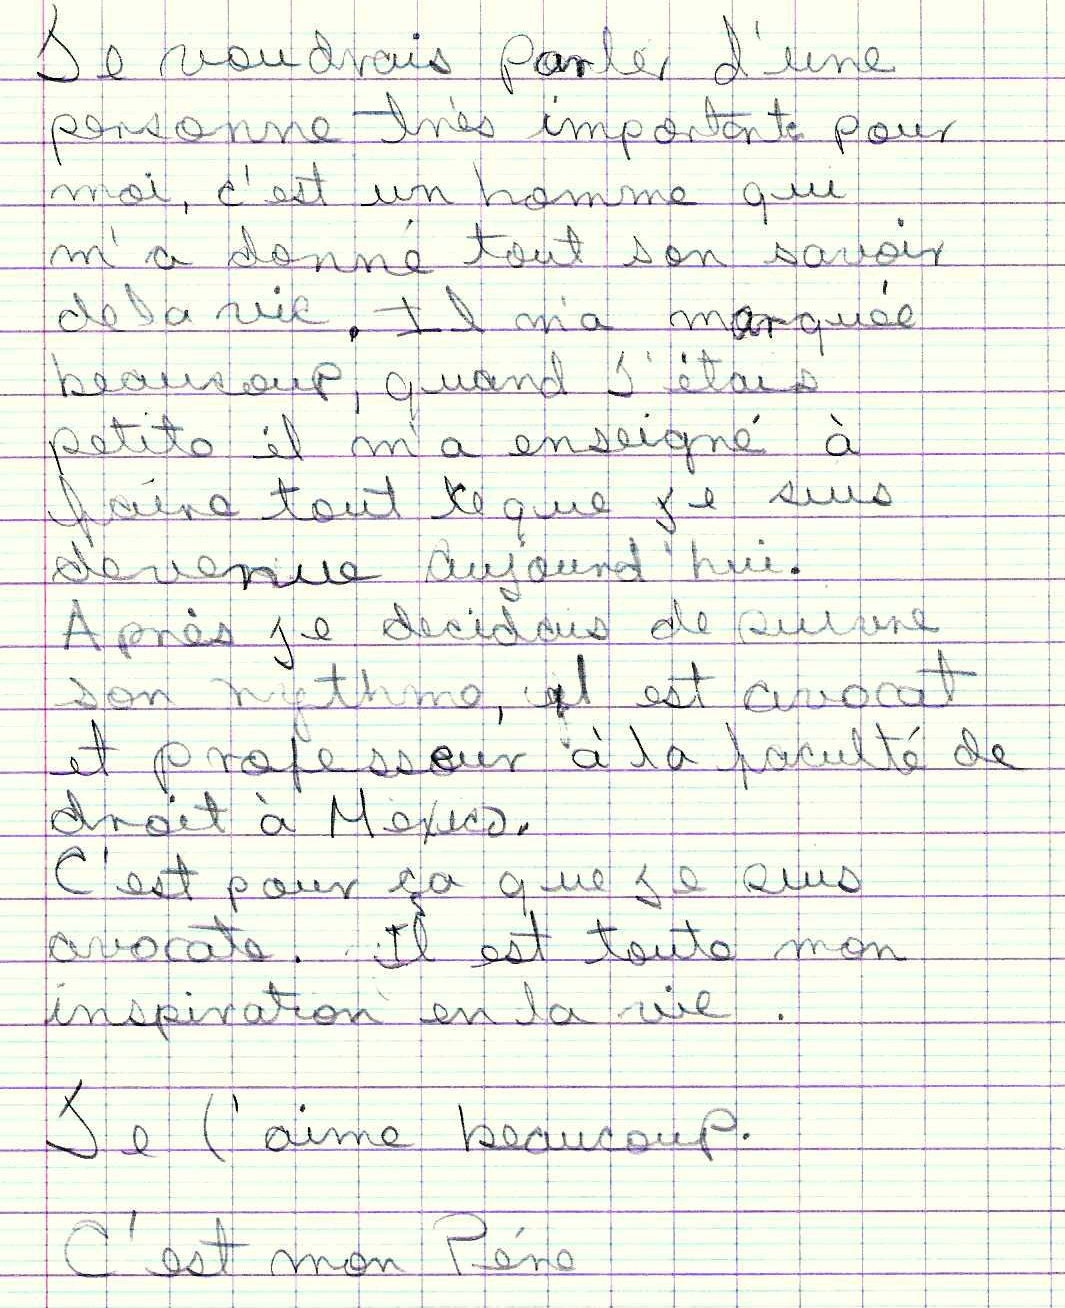 Je voudrais parler d'une
personne très importante pour
moi, c'est un homme qui
m'a donné tout son savoir
de la vie. Il m'a marquée
beaucoup, quand j'étais
petite il m'a enseigné à
faire tout ce que je suis
devenue aujourd'hui.
Après je decidais de suivre
son rythme, il est avocat
et professeur à la faculté de
droit à Mexico.
C'est pour ça que je suis
avocate. Il est toute mon
inspiration en la vie.
Je l'aime beaucoup.
C'est mon Pére